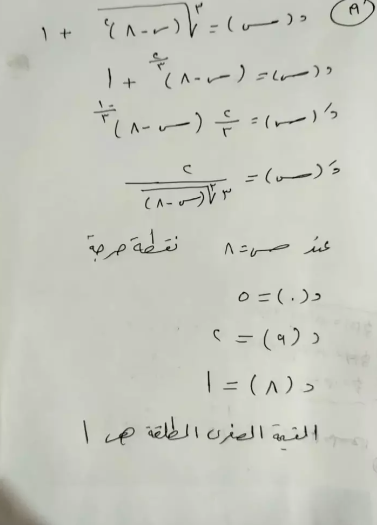 ١٩
د(س) = ٣√(س-٨)٢ + ١
د(س) = (س-٨)٢/٣ + ١
دَ(س) = ٢/٣ (س-٨)-١/٣
دَ(س) = ٢ / ٣ ٣√(س-٨)
عند س=٨ نقطة حرجة
د(٠) = ٥
د(٩) = ٢
د(٨) = ١
القيمة الصغرى المطلقة هى ١